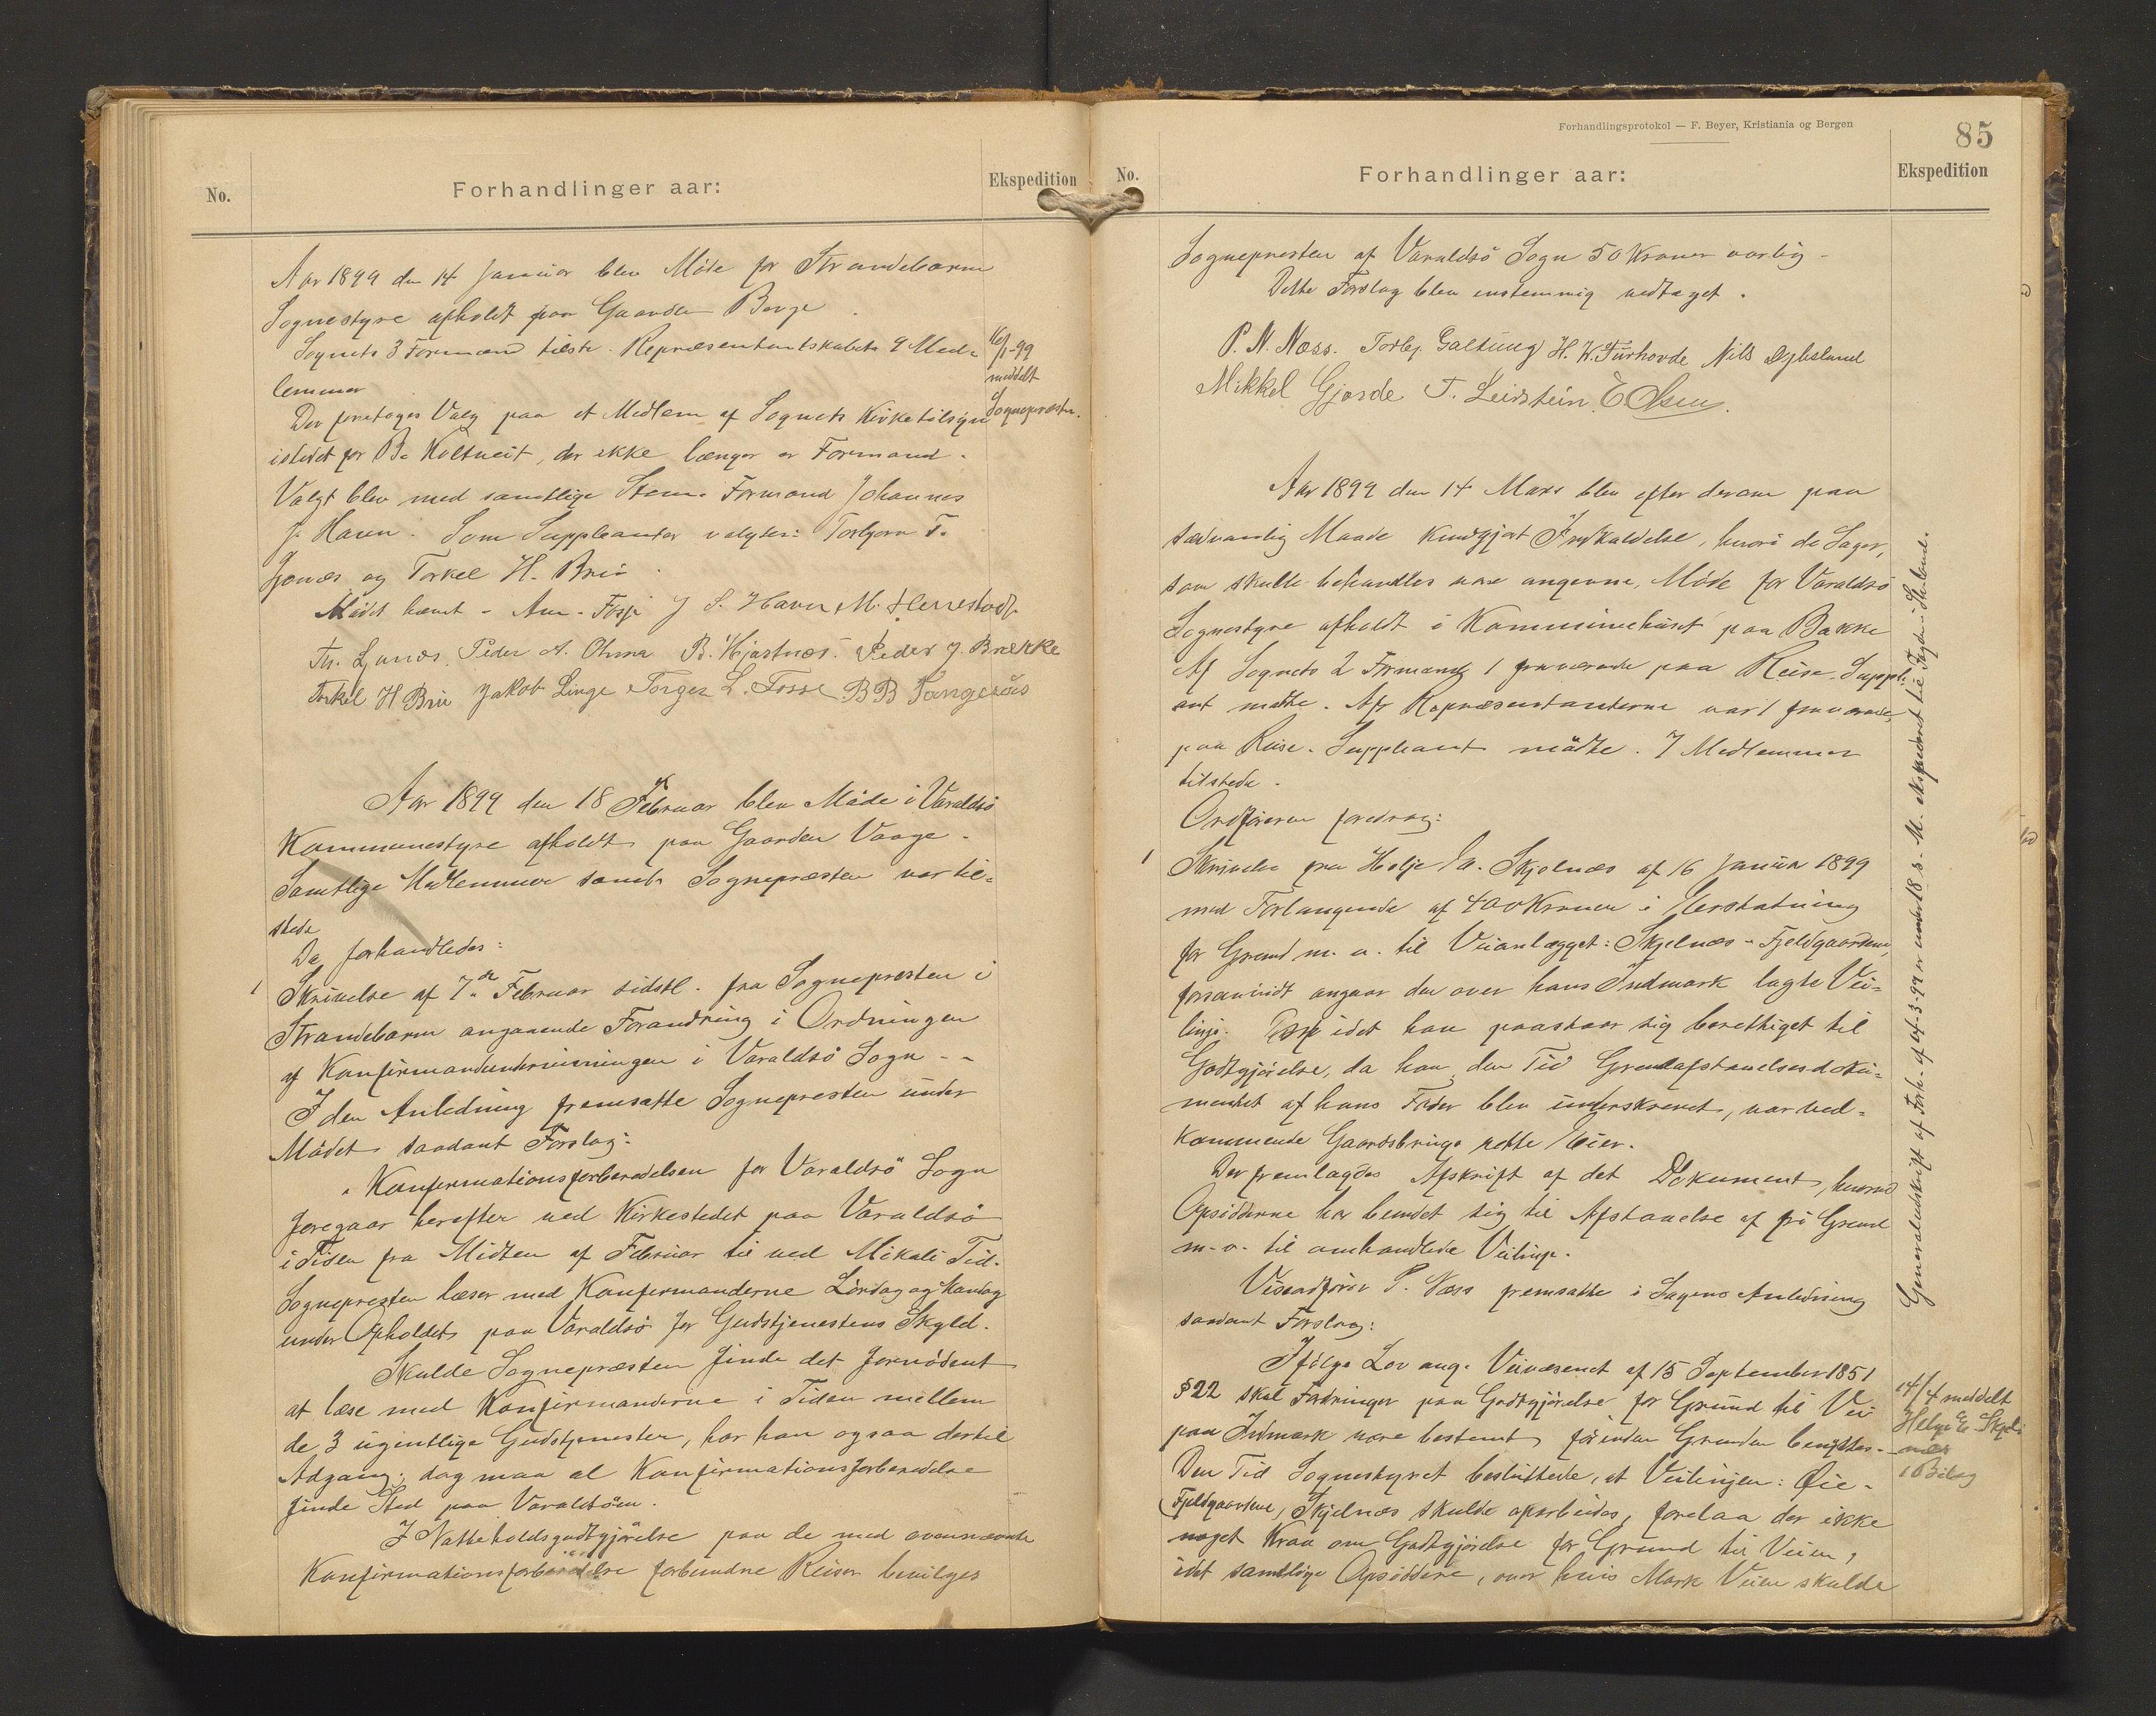 No.
Forhandlinger aar:
Ekspedition
Aar 1899 den 14 Januar blev Möde for Strandebarm
Sognestyre afholdt paa Gaarden Berge
Sognets 3 Formænd tilst. Repræsentantskabets 9 Med-
lemmer
Der foretoges Valg paa et Medlem af Sognets Kirketilsyn
istedet for B. Koltveit, der ikke længer er Formand.
Valgt blev med samtlige Stem. Formand Johannes
J. Haven. Som Suppleanter valgtes: Torbjørn T.
Ljones og Torkel H. Brei
Mödet hævet - Am. Fosse J S. Haven M. Herrestad
Th. Ljones Peder A. Omre B. Hjartnes. Peder J. Brekke
Torkel H Brei Jakob Linge Torger L. Fosse B B Tangeraas
16/1-99
meddelt
Sognepræsten.
Aar 1899 den 18 Februar blev Möde i Varaldsö
Kommunestyre afholdt paa Gaarden Vaage -
Samtlige Medlemmer samt Sognepræsten var til-
stede
Da forhandledes:
1
Skrivelse af 7de Februar sidstl. fra Sognepresten i
Strandebarm angaaende Forandring i Ordningen
af Konfirmandundervisningen i Varaldsö Sogn - -
I den Anledning fremsatte Sognepresten under
Mödet saadant Forslag:
"Konfirmationsforberedelsen for Varaldsö Sogn
foregaar herefter ved Kirkestedet paa Varaldsö
i Tiden fra Midten af Februar til ved Mikali Tid.
Sognepresten læser med Konfirmanderne Lördag og Mandag
under Opholdet paa Varaldsö for Gudstjenestens Skyld.
Skulde Sognepræsten finde det fornödent
at læse med Konfirmanderne i Tiden mellem
de 3 ugentlige Gudstjenester, har han ogsaa dertil
Adgang; dog maa al Konfirmationsforberedelse
finde Sted paa Varaldsöen.
I Natteholdsgodtgjörelse paa de med ovennævnte
Konfirmationsforberedelse forbundne Reiser bevilges
Forhandlingsprotokol — F. Beyer, Kristiania og Bergen
85
No.
Forhandlinger aar:
Ekspedition
Sognepresten af Varaldsö Sogn 50 Kroner aarlig -
Dette Forslag blev enstemmig vedtaget.
P. N. Næss. Torbj. Galtung H. W. Turhovde Nils Dybsland
Mikkel Gjerde T. Leirstein E Olsen.
Aar 1899 den 14 Mars blev efter derom paa
sædvanlig Maade kundgjort Indkaldelse, hvori de Sager,
som skulle behandles var angivne, Möde for Varaldsö
Sognestyre afholdt i Kommunehuset paa Bakke
Af Sognets 2 Formænd 1 fraværende paa Reise. Supple-
ant mødte. Af Repræsentanterne var 1 fraværende
paa Reise. Suppleant mödte. 7 Medlemmer
tilstede.
Ordføreren foredrog:
1
Skrivelse fra Helje E. Skjelnæs af 16 Januar 1899
med Forlangende af 400 Kroner i Erstatning
for Grund m. v. til Veianlægget: Skjelnæs - Fjeldgaardene,
forsaavidt angaar den over hans Indmark lagte Vei-
linje. idet han paastaar sig berettiget til
Godtgjörelse, da han, den Tid Grundafstaaelsesdoku-
mentet af hans Fader blev underskrevet, var ved-
kommende Gaardsbrugs rette Eier.
Der fremlagdes Afskrift af det Dokument, hvorved
Opsidderne har bundet sig til Afstaaelse af fri Grund
m. v. til omhandlede Veilinje.
Viseordförer P. Næss fremsatte i Sagens Anledning
saadant Forslag:
Ifölge Lov ang. Veivæsenet af 15 September 1851
§ 22 skal Fordringer paa Godtgjörelse for Grund til Vei
paa Indmark være bestemt förinden Grunden benyttes -
Den Tid Sognestyret besluttede, at Veilinjen: Øie -
Fjeldgaardene, Skjelnæs skulde oparbeides, forelaa der ikke
noget Krav om Godtgjörelse for Grund til Veien,
idet samtlige Opsiddere, over hvis Mark Veien skulde
14/4 meddelt
Helge E. Skjel-
næs
1 Bilag
Generaludskrift af Forh. af 14-3-99 er under 18 s. M. ekspederet til Fogden i Sunhordl.